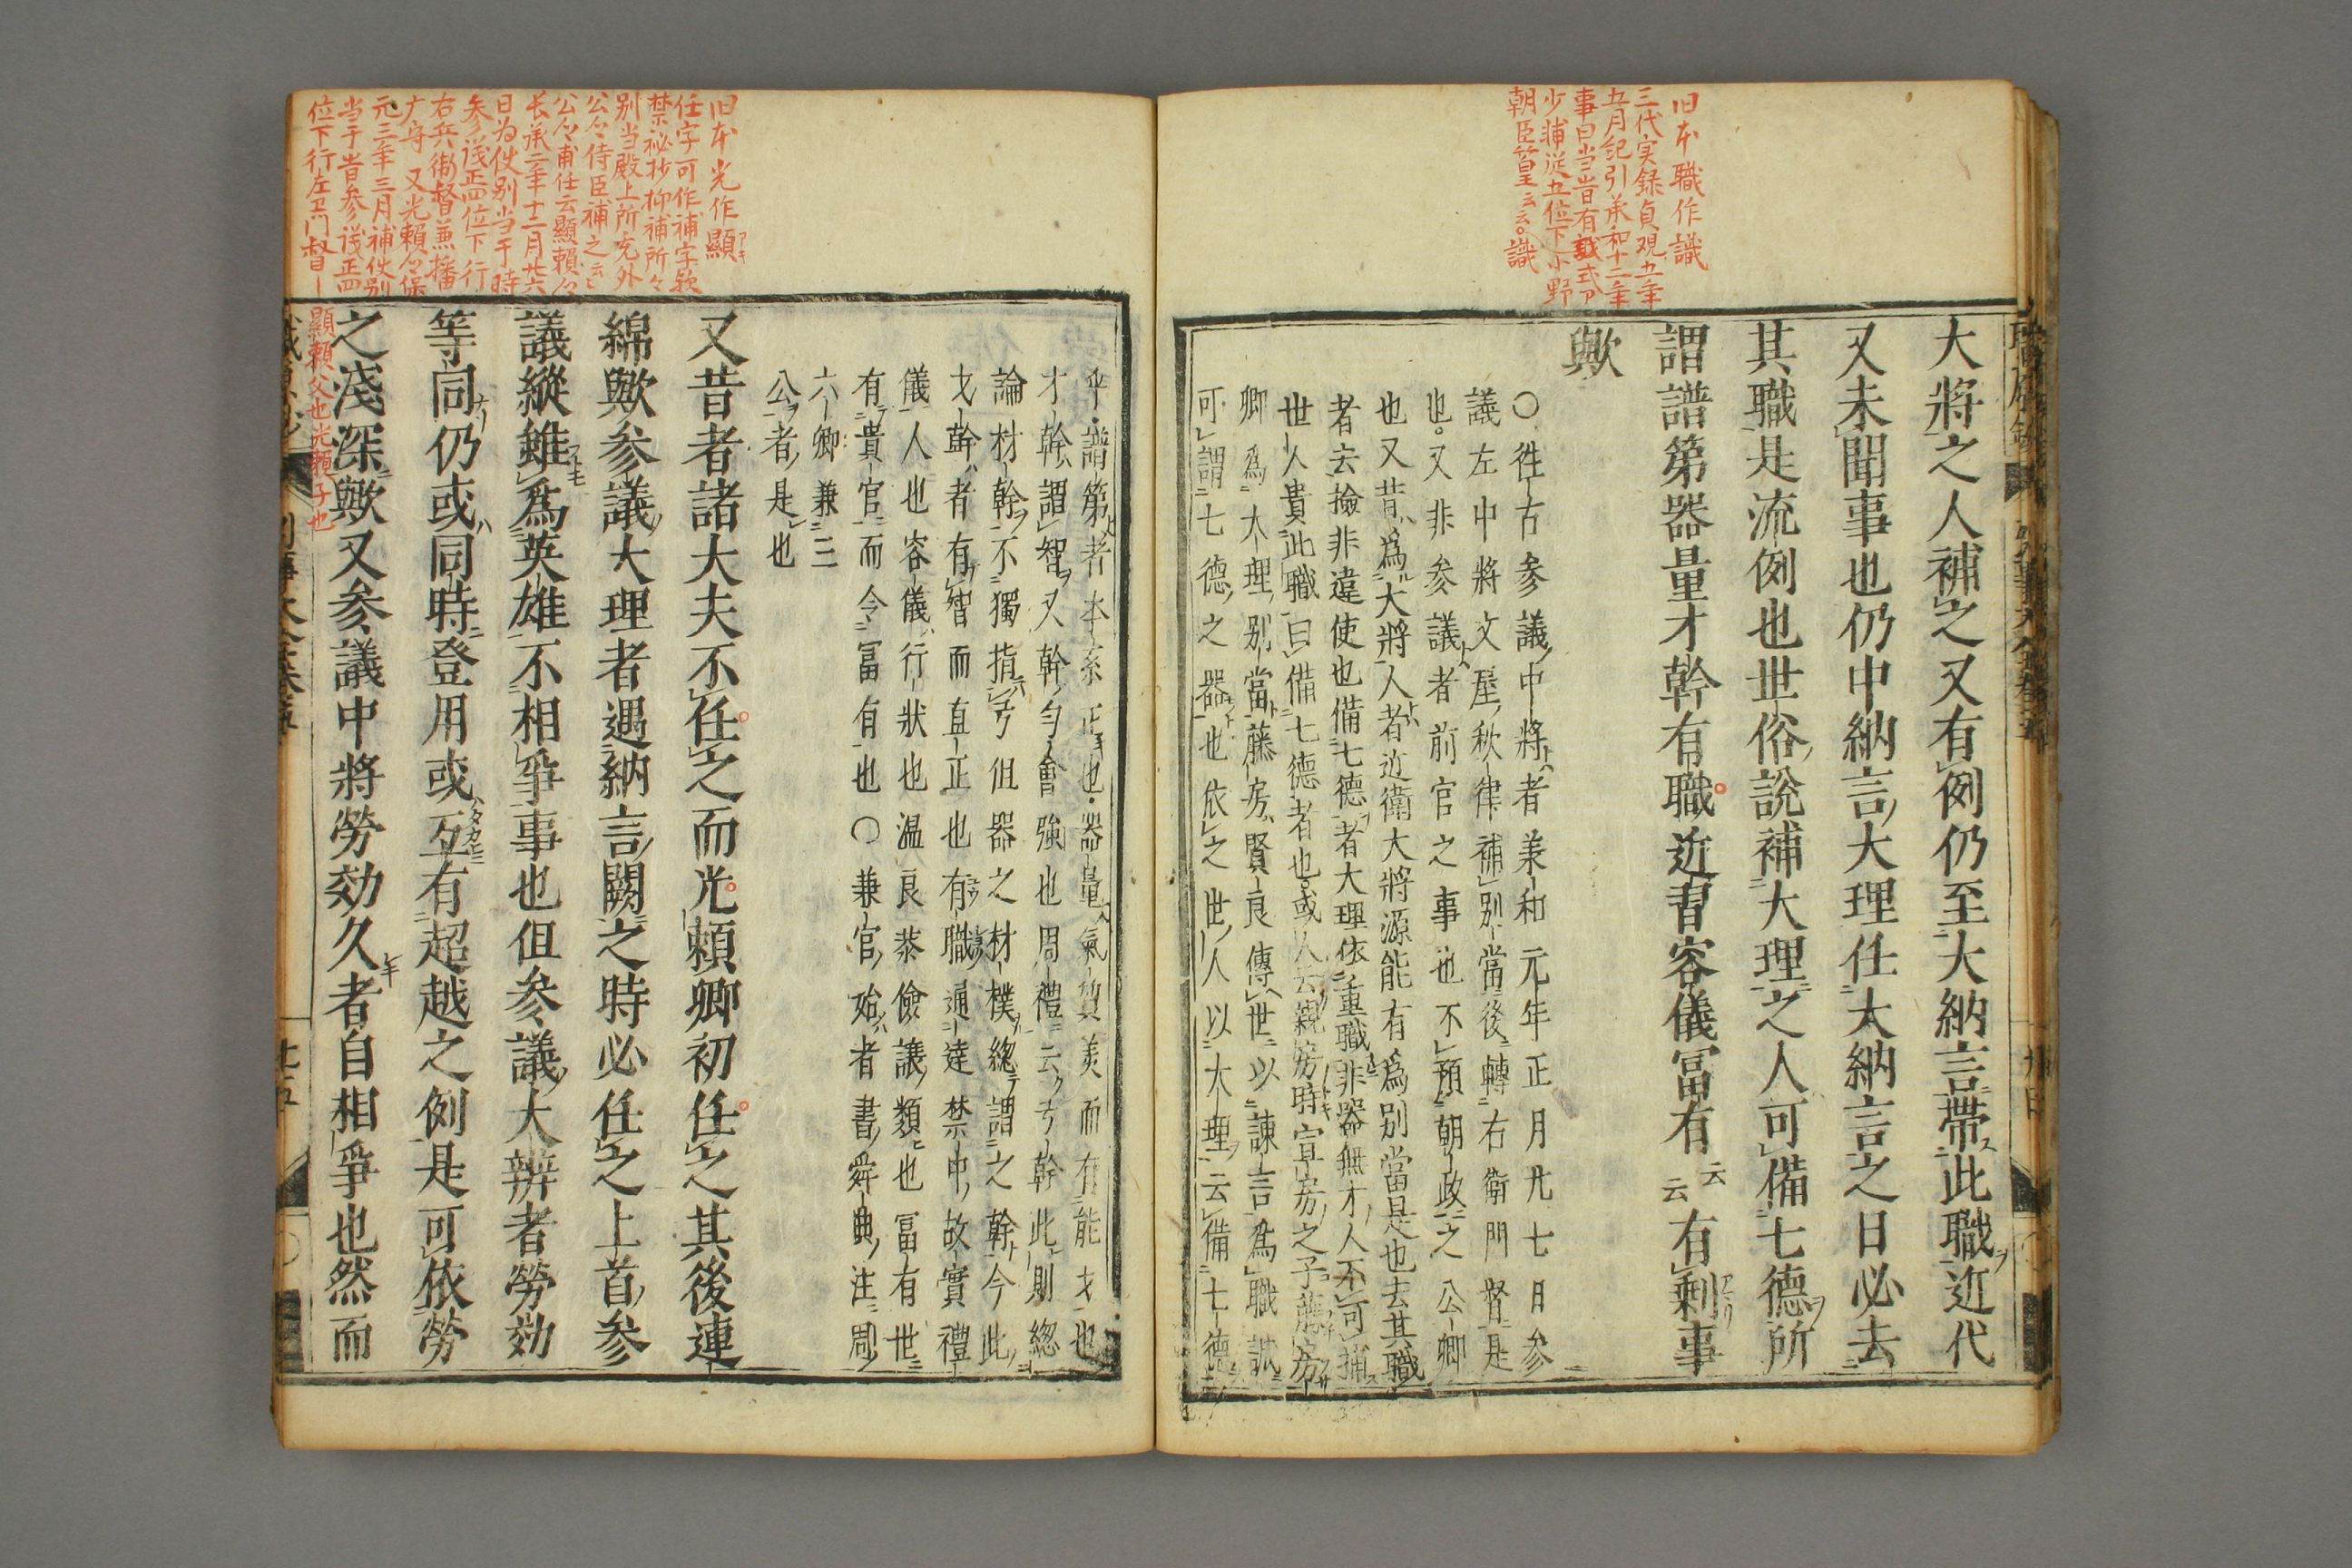 旧本職作識
三代実録貞観五年
五月紀引承和十二年
事曰当時有識式ア
少輔従五位下小野
朝臣篁云云。識
大將之人補之又有例仍至大納言帶此職近代
又未聞事也仍中納言大理任大納言之日必去
其職是流例也世俗說補大理之人可備七德所
謂譜第器量才幹有職近習容儀冨有云云有剰事
歟
〇徃古參議中將者兼和元年正月九七日參
議左中將文屋秋律補別當後轉右衛門督是
也又非參議者前官之事也不預朝政之公卿
也又昔爲大將人者近衛大將源能有爲別當是也去其職
者去撿非違使也備七德者大理依重職非器無才人不可補
世人貴此職曰備七德者也或人云親房時宣房之子藤房
卿爲大理別當藤房賢良傳世以諫言爲職誠
可謂七德之器也依之世人以大理云備七德
乎譜第者本系正也器量氣質美而有能才也
才幹謂智又幹勻會強也周禮云亐幹此則總
論材幹不獨指亐但器之材樸總謂之幹今此
才幹者有智而直正也有職通達禁中故實禮
儀人也容儀行狀也温良恭儉讓類也冨有世
有貴官而令冨有也〇兼官始者書舜典注周
六卿兼三
公者是也
旧本光作顯
任字可作補字欤
禁秘抄抑補所々
別当殿上所宛外
公卿侍臣補之云々
長承二年十二月廿六
日为使別当于時
參议正四位下行
右兵衛督兼播
元三年三月補使別
当于時參议正四
位下行左卫门督
又昔者諸大夫不任之而光頼卿初任之其後連
綿歟参議大理者遇納言闕之時必任之上首参
議縱雖爲英雄不相爭事也但参議大辨者勞効
等同仍或同時登用或互有超越之例是可依勞
之淺深歟又参議中將勞効久者自相爭也然而
顯頼父也光頼子也